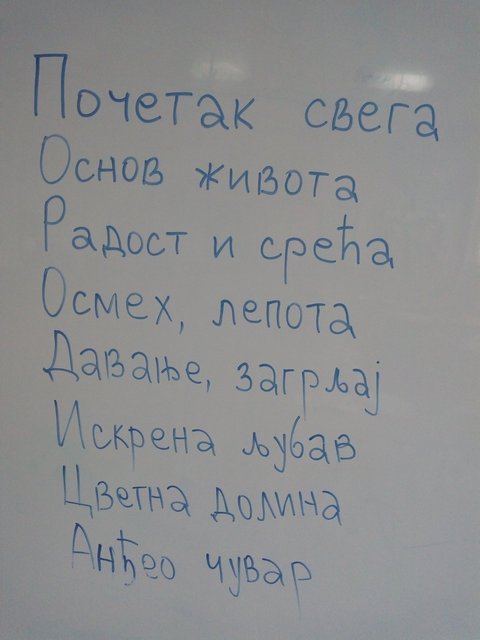 Почетак свега
Основ живота
Радост и срећа
Осмех, лепота
Давање, загрљај
Искрена љубав
Цветна долина
Анђео чувар